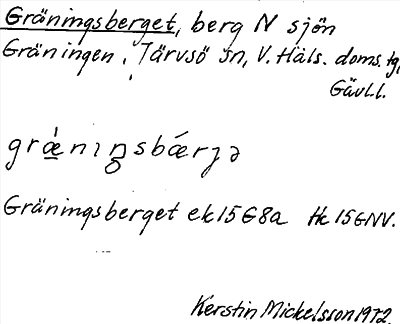 Gräningsberget, berg N sjön
Gräningen, Järvsö sn, V. Häls. doms. tg,
Gävl.l.
grǽnıŋsbǽrjə
Gräningsberget ek 15G8a Hk 15GNV.
Kerstin Mickelsson 1972.